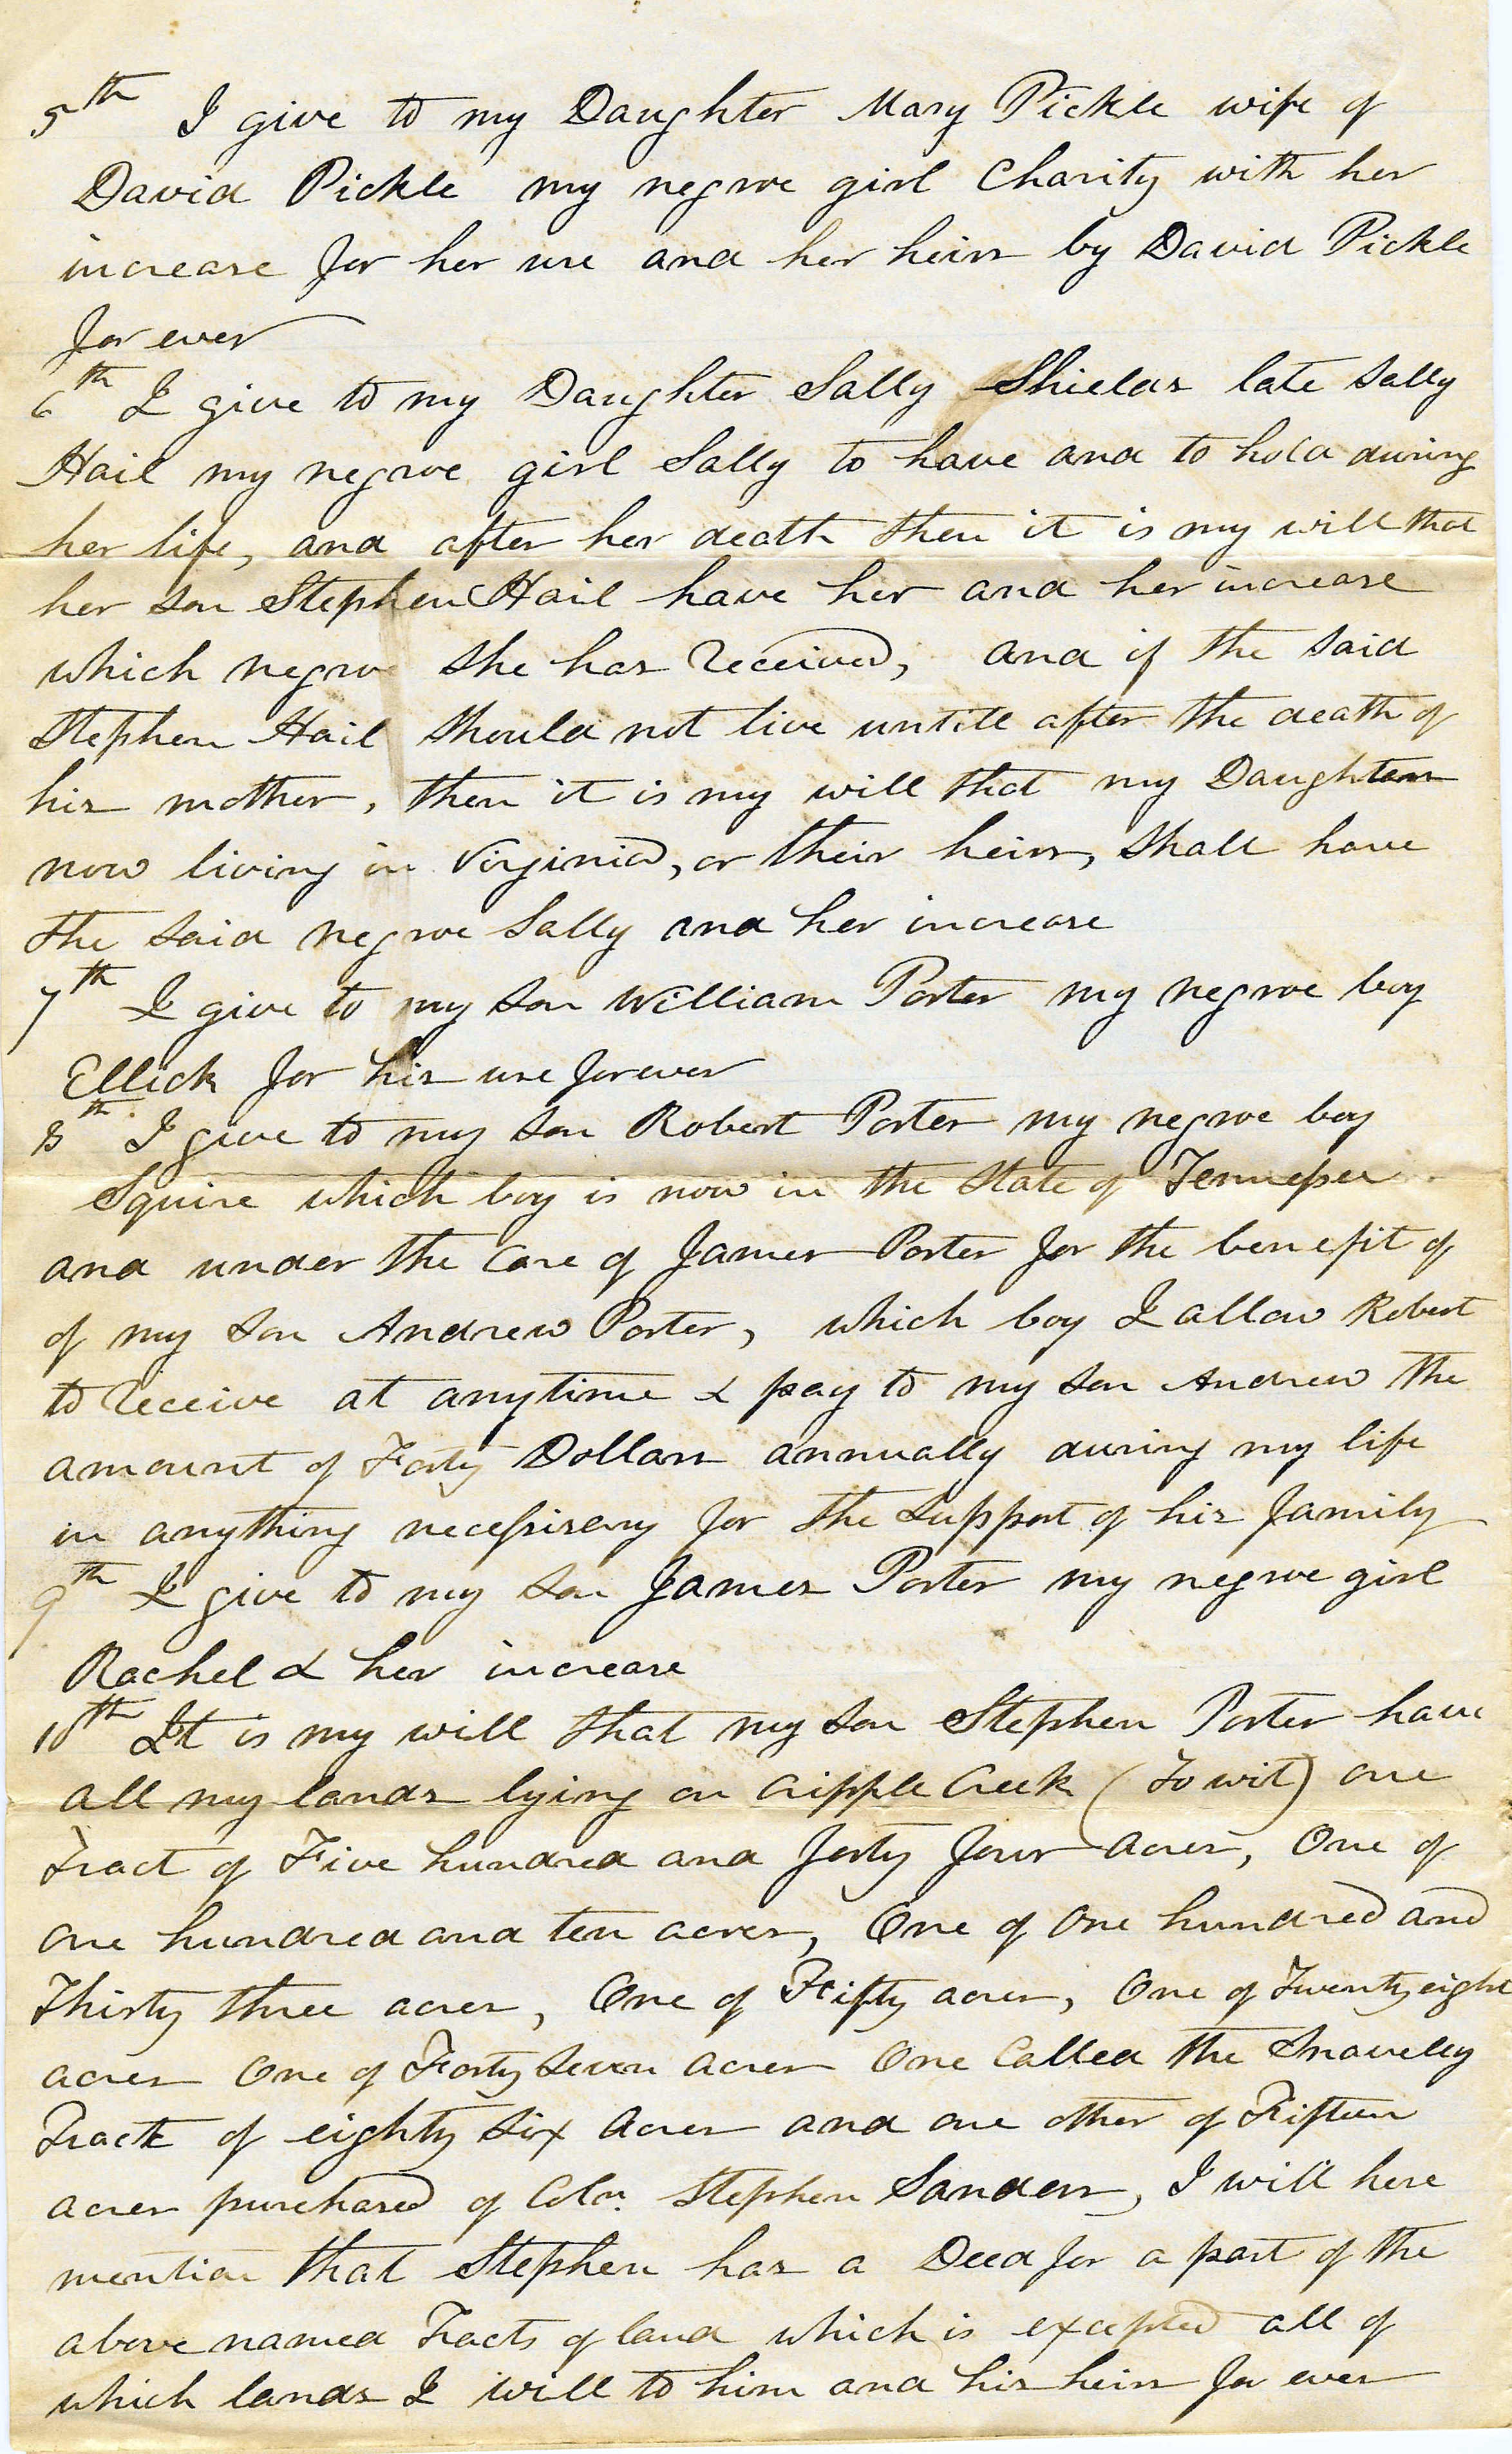 5th I give to my Daughter Mary Pickle wife of
David Pickle my negroe girl Charity with her
increase for her use and her heirs by David Pickle
for ever
6th I give to my Daughter Sally Shields late Sally
Hail my negroe girl Sally to have and to hold during
her life, and after her death then it is my will that
her son Stephen Hail have her and her increase
which negroe she has received, and if the said
Stephen Hail should not live untill after the death of
his mother, then it is my will that my Daughters
now living in Virginia, or their heirs, shall have
the said negroe Sally and her increase
7th I give to my son William Porter my negroe boy
Ellick for his use forever
8th I give to my son Robert Porter my negroe boy
Squire which boy is now in the State of Tennessee
and under the care of James Porter for the benefit of
of my son Andrew Porter, which boy I allow Robert
to receive at anytime & pay to my son Andrew the
amount of Forty Dollars annually during my life
in anything necessisary for the support of his family
9th I give to my son James Porter my negroe girl
Rachel & her increase
10th It is my will that my son Stephen Porter have
all my lands lying on Cripple Creek (To wit) one
Tract of Five hundred and forty four acres, One of
one hundred and ten acres, One of One hundred and
Thirty three acres, One of Fifty acres, One of Twenty eight
acres One of Forty seven acres One Called the Snaveley
Tract of eighty six acres and one other of Fifteen
acres purchased of Coln. Stephen Sanders, I will here
mention that Stephen has a Deed for a part of the
above named Tracts of land which is excepted all of
which lands I will to him and his heirs for ever